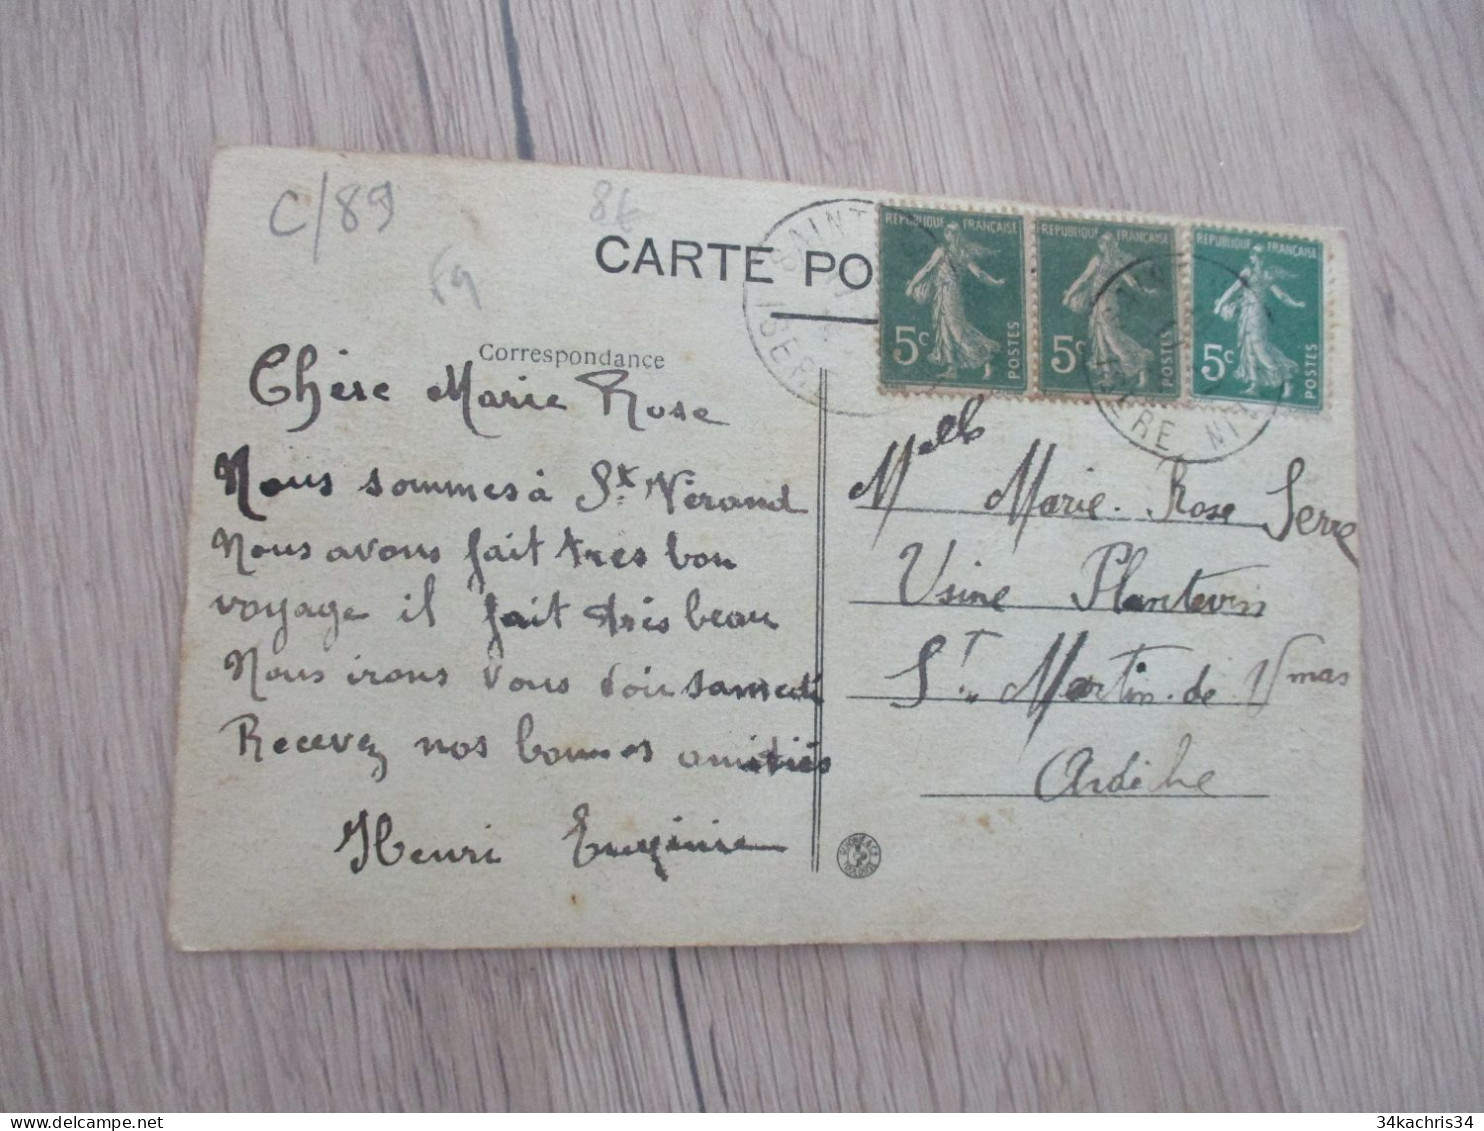 C/89
8€
F9
CARTE PO
Correspondance
Chère Marie Rose
Nous sommes à St Vérand
Nous avons fait très bon
voyage il fait très beau
Nous irons vous voir samedi
Recevez nos bonnes amitiés
Henri Eugénie
REPUBLIQUE FRANÇAISE
5c POSTES
REPUBLIQUE FRANÇAISE
5c POSTES
REPUBLIQUE FRANÇAISE
5c POSTES
SAINT
ISERE
Melle Marie-Rose Serre
Usine Plantevin
St Martin-de Vmas
Ardèche
delcampe.net
34kachris34